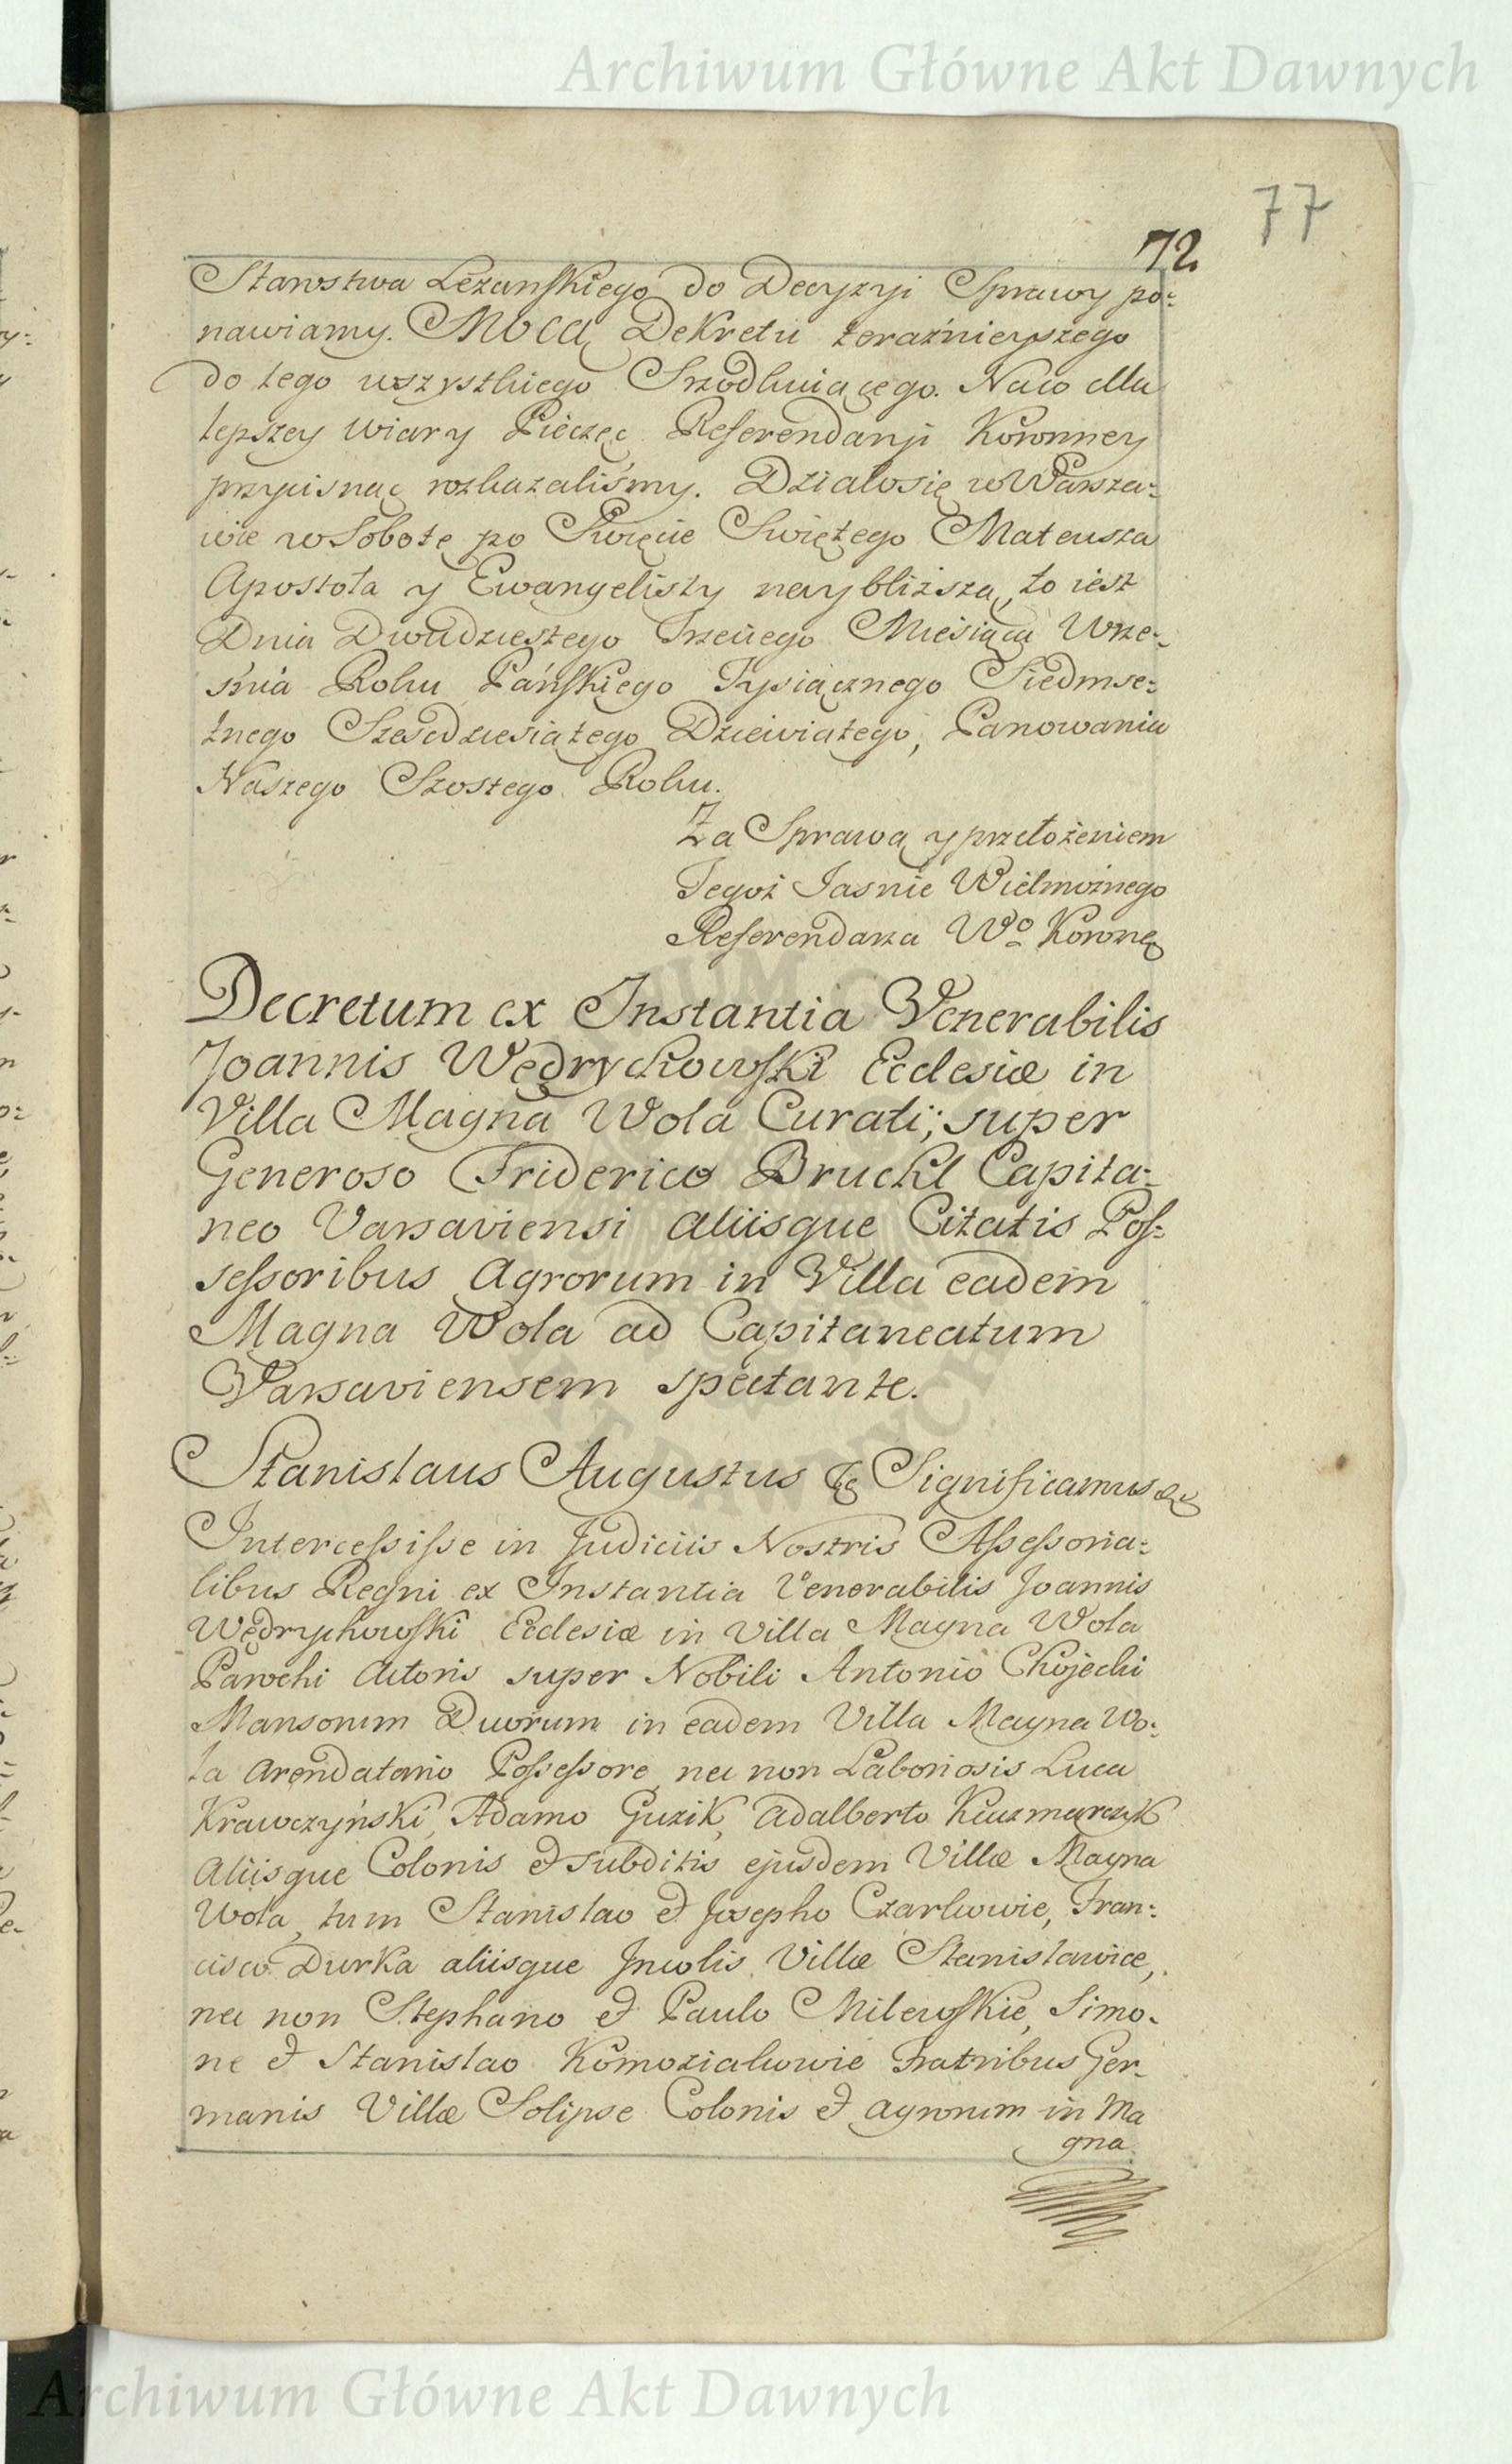 Archiwum Główne Akt Dawnych
77
72.
Starostwa Leżanskiego do Decyzyi Sprawy po=
nawiamy. Mocą Dekretu teraźnieyszego
do tego wszystkiego Srzodkuiącego. Na co dla
lepszey wiary Pieczęć Referendaryi Koronney
przycisnąć rozkazaliśmy. Działo się w Warsza=
wie w Sobotę po Święcie Swiętego Mateusza
Apostoła y Ewangelisty naybliższą, to iest
Dnia Dwudziestego Trzeciego Miesiąca Wrze=
śnia Roku Pańskiego Tysiącznego Siedmse=
tnego Sześcdziesiątego Dziewiątego, Panowania
Naszego Szostego Roku.
Za Sprawą y przełożeniem
Tegoż Jasnie Wielmożnego
Referendarza Wo Koronne
Decretum ex Instantia Venerabilis
Joannis Wędrychowski Ecclesiæ in
Villa Magna Wola Curati; super
Generoso Friderico Bruchl Capita=
neo Varsaviensi aliisque Citatis Pos=
sessoribus Agrorum in Villa eadem
Magna Wola ad Capitaneatum
Varsaviensem spectante.
Stanislaus Augustus &c Significamus &c
Intercessisse in Judiciis Nostris Assessoria=
libus Regni ex Instantia Venerabilis Joannis
Wędrychowski Ecclesiæ in Villa Magna Wola
Parochi Actoris super Nobili Antonio Chojecki
Mansorum Duorum in eadem Villa Magna Wo=
la Arendatario Possessore, nec non Laboriosis Luca
Krawczyński, Adamo Guzik, Adalberto Kuzmarczyk
aliisque Colonis et subditis ejusdem Villæ Magna
Wola, tum Stanislao et Josepho Czarkowie, Fran=
cisco Durka aliisque Incolis Villæ Stanislawice,
nec non Stephano et Paulo Milewskie, Simo=
ne et Stanislao Komoziakowie Fratribus Ger=
manis Villæ Solipse Colonis et agrorum in Ma
gna
Archiwum Główne Akt Dawnych